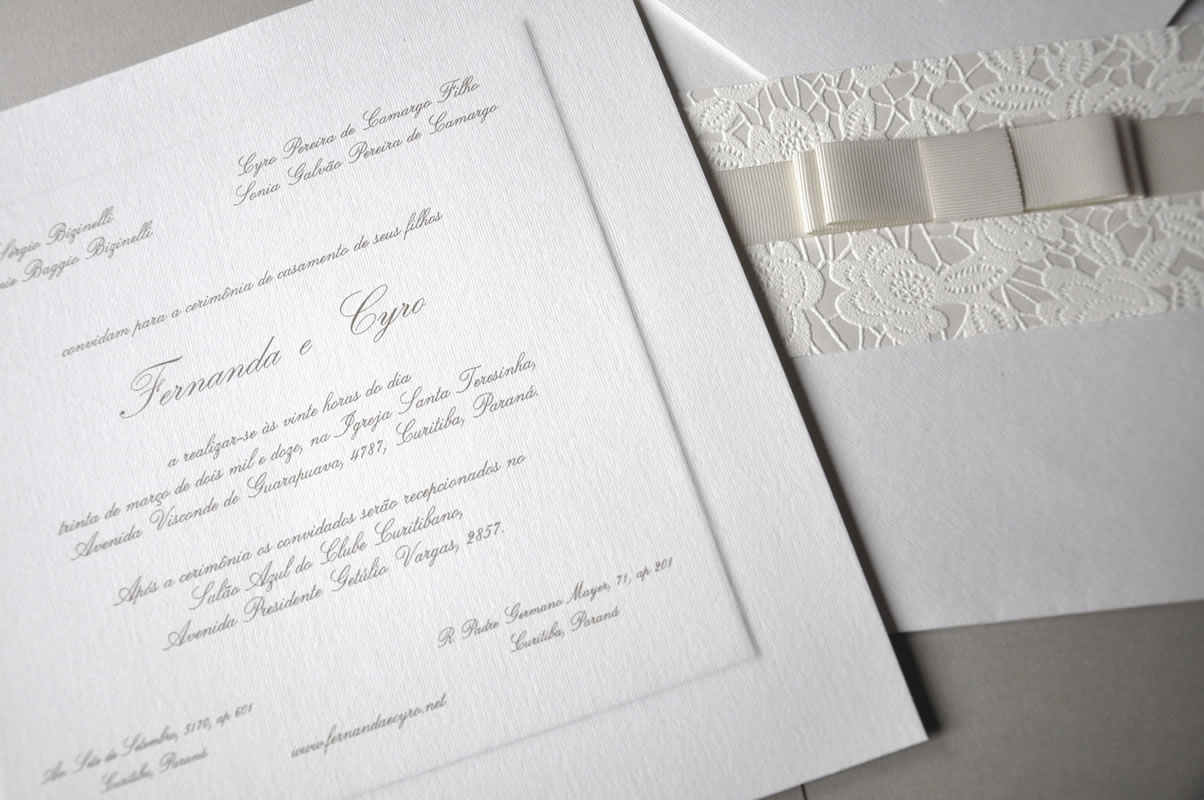 Sérgio Bizinelli
Baggio Bizinelli
Cyro Pereira de Camargo Filho
Sonia Galvão Pereira de Camargo
convidam para a cerimônia de casamento de seus filhos
Fernanda e Cyro
a realizar-se às vinte horas do dia
trinta de março de dois mil e doze, na Igreja Santa Teresinha,
Avenida Visconde de Guarapuava, 4787, Curitiba, Paraná.
Após a cerimônia os convidados serão recepcionados no
Salão Azul do Clube Curitibano,
Avenida Presidente Getúlio Vargas, 2857.
Av. Sete de Setembro, 5170, ap 601
Curitiba, Paraná
R. Padre Germano Mayer, 71, ap 201
Curitiba, Paraná
www.fernandaecyro.net